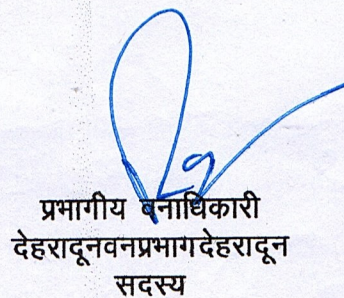 प्रभागीय वनाधिकारी
देहरादूनवनप्रभागदेहरादून
सदस्य